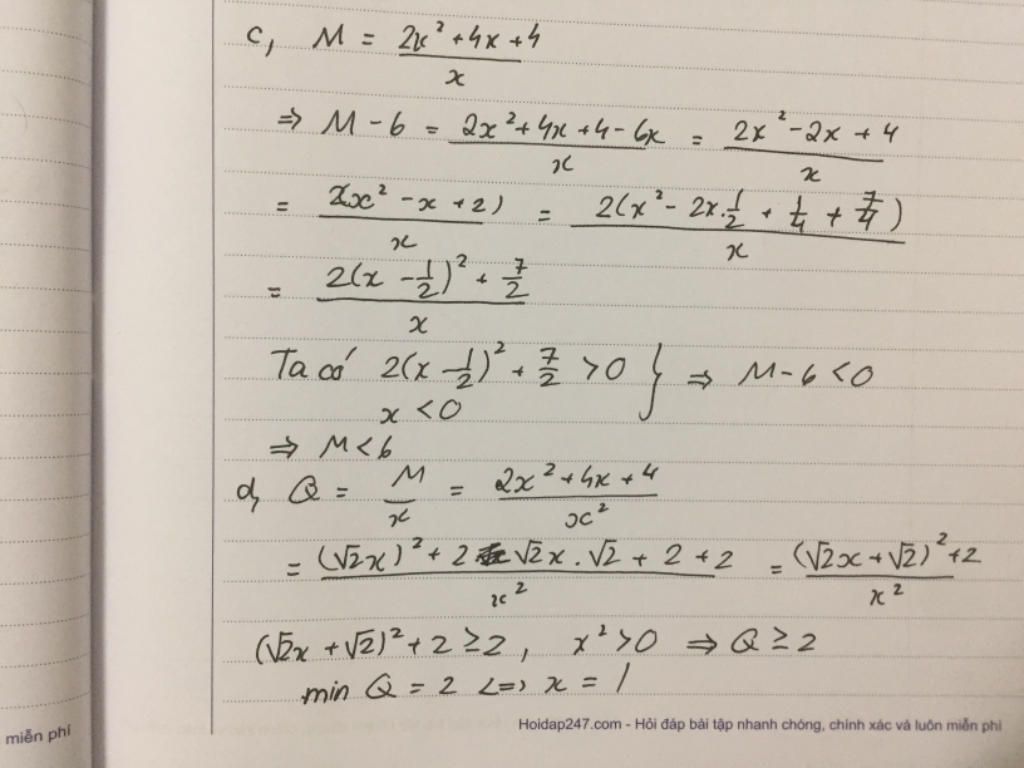 c, M = (2x² + 4x + 4)/x
⇒ M - 6 = (2x² + 4x + 4 - 6x)/x = (2x² - 2x + 4)/x
= 2(x² - x + 2)/x = 2(x² - 2x.1/2 + 1/4 + 7/4)/x
= (2(x - 1/2)² + 7/2)/x
Ta có 2(x - 1/2)² + 7/2 > 0 } ⇒ M - 6 < 0
x < 0
⇒ M < 6
d, Q = M/x = (2x² + 4x + 4)/x²
= ((√2x)² + 2 √2x . √2 + 2 + 2)/x² = ((√2x + √2)² + 2)/x²
(√2x + √2)² + 2 ≥ 2, x² > 0 ⇒ Q ≥ 2
min Q = 2 <=> x = 1
miễn phí
Hoidap247.com - Hỏi đáp bài tập nhanh chóng, chính xác và luôn miễn phí